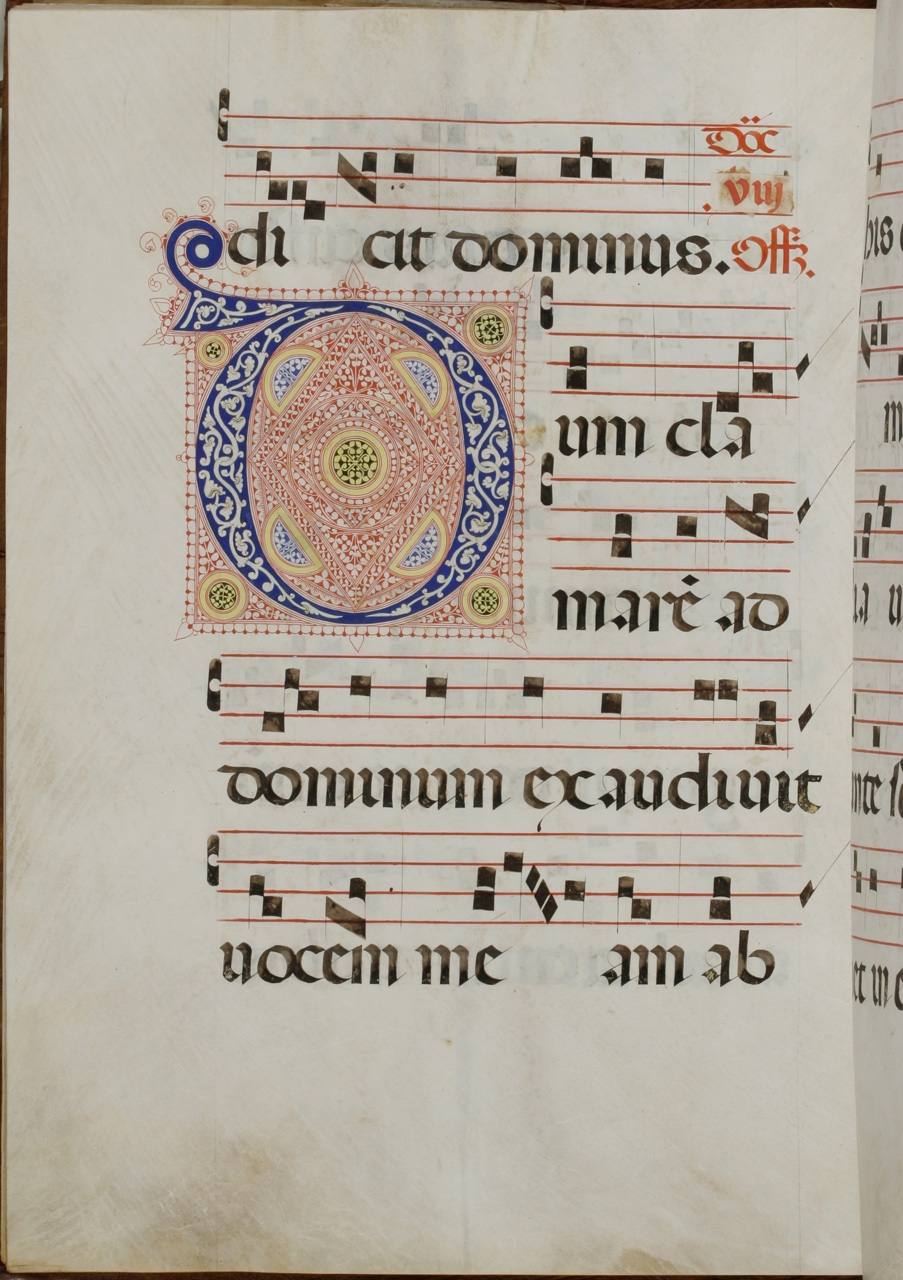 viij
di cat dominus. Offz.
Dum cla
marē ad
dominum exaudiuit
uocem me am ab